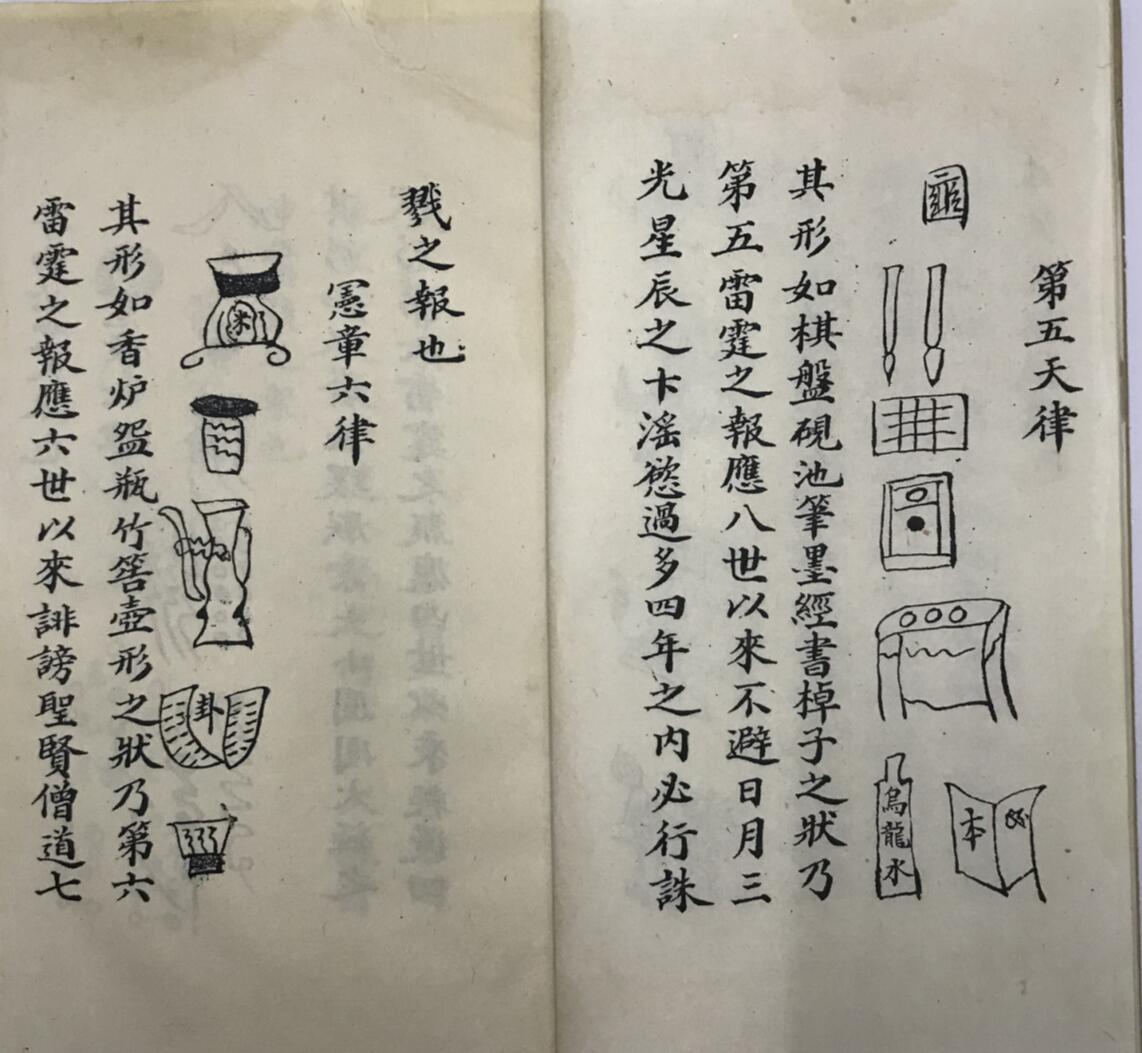 第五天律
烏龍水
本
其形如棋盤硯池筆墨經書棹子之狀乃
第五雷霆之報應八世以來不避日月三
光星辰之卞滛慾過多四年之内必行誅
戮之報也
憲章六律
米
卦
其形如香炉盌瓶竹筶壺形之狀乃第六
雷霆之報應六世以來誹謗聖賢僧道七